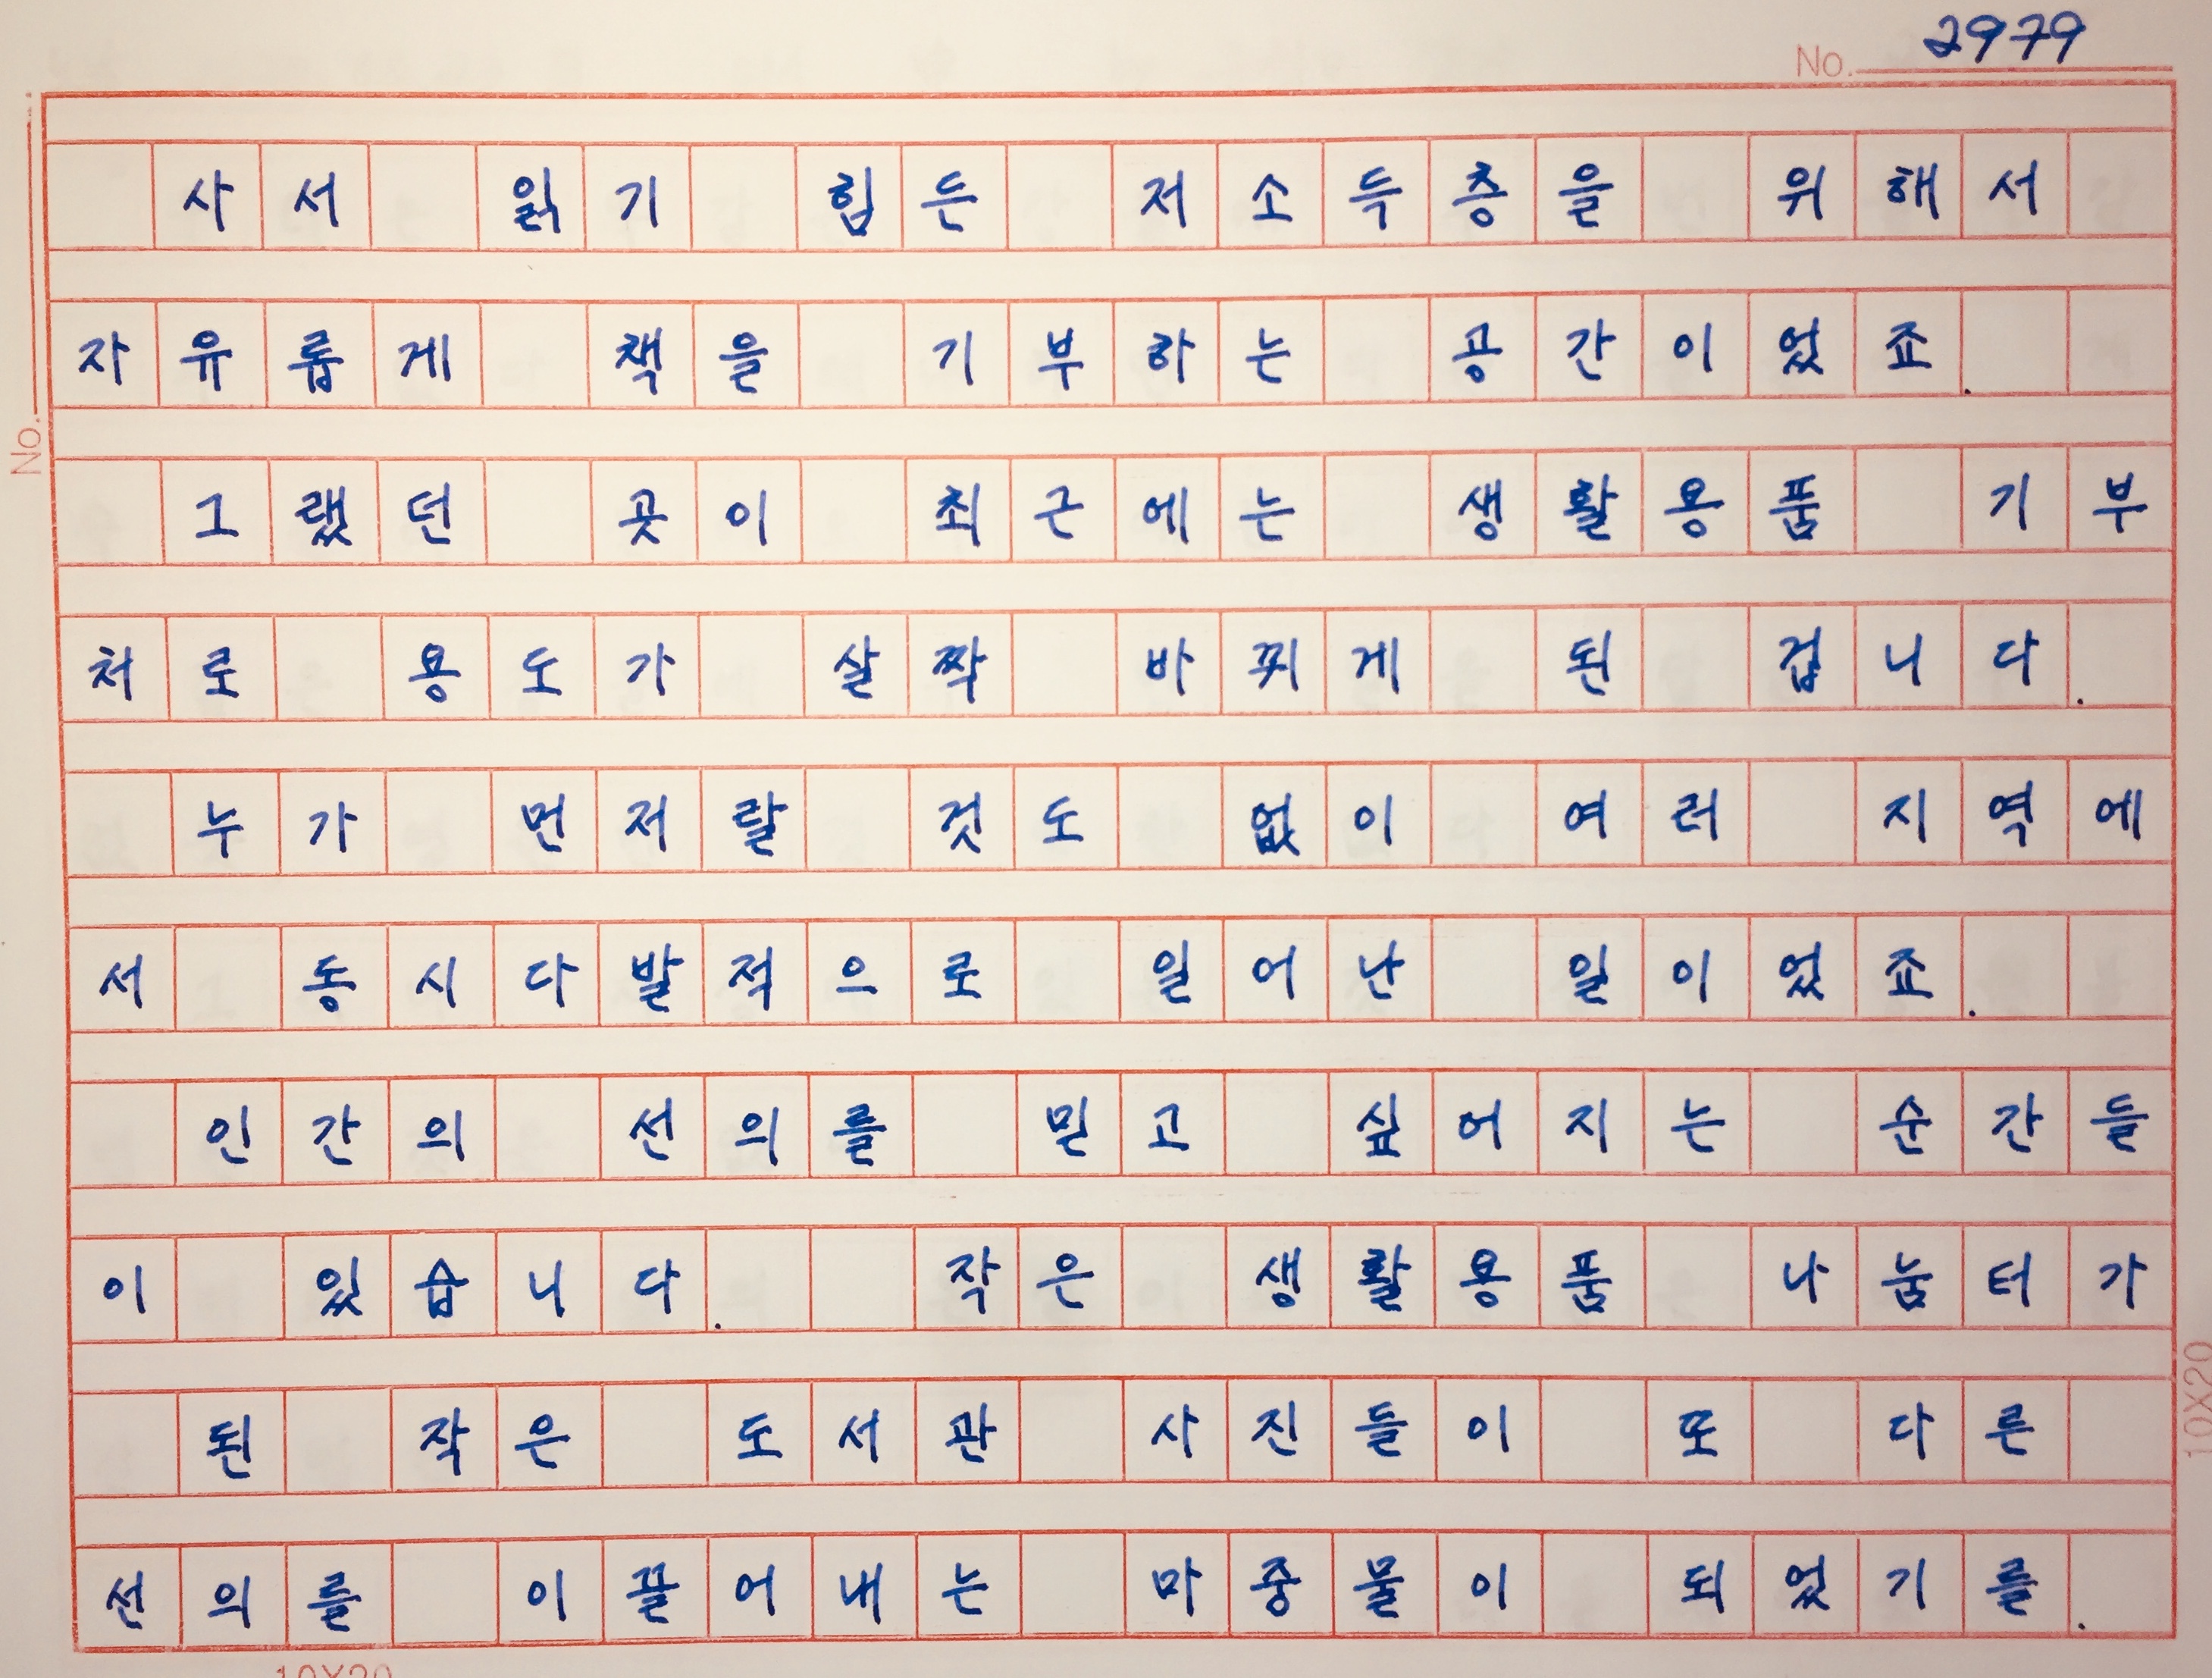 No. 2979
사서 읽기 힘든 저소득층을 위해서
자유롭게 책을 기부하는 공간이었죠.
그랬던 곳이 최근에는 생활용품 기부
처로 용도가 살짝 바뀌게 된 겁니다.
누가 먼저랄 것도 없이 여러 지역에
서 동시다발적으로 일어난 일이었죠.
인간의 선의를 믿고 싶어지는 순간들
이 있습니다. 작은 생활용품 나눔터가
된 작은 도서관 사진들이 또 다른
선의를 이끌어내는 마중물이 되었기를.
No.
10X20
10X20